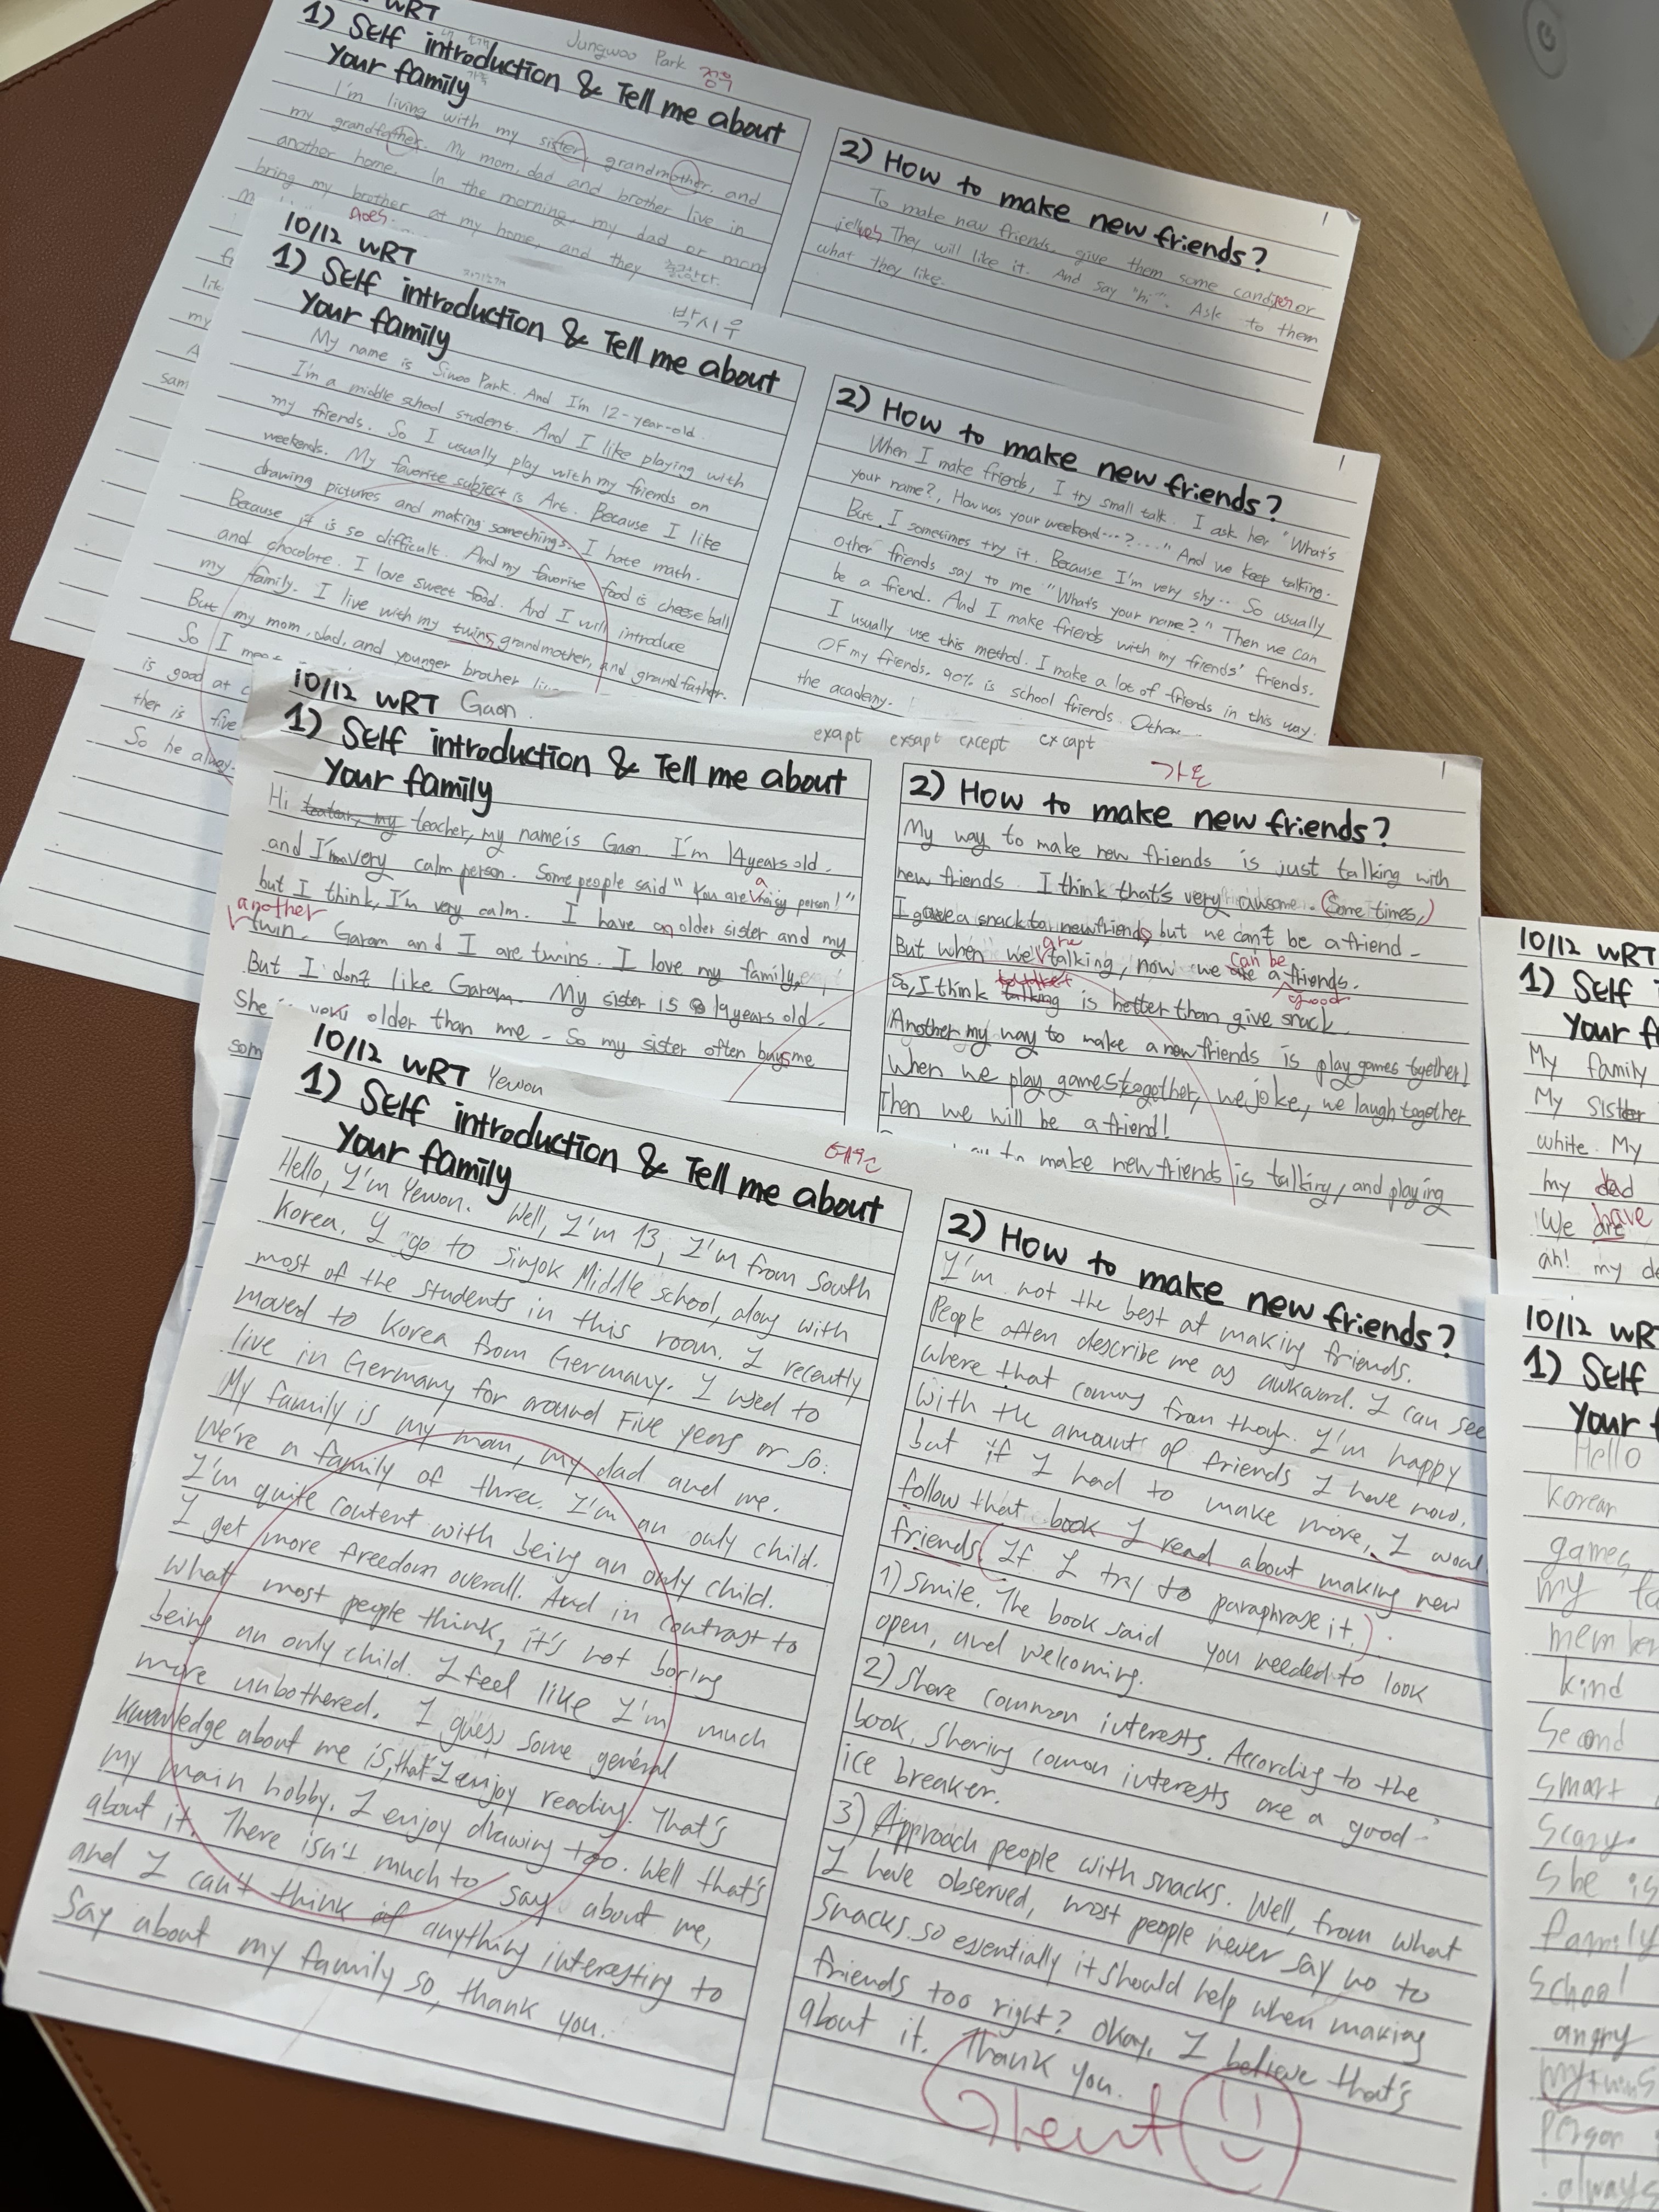 WRT
Jungwoo Park 정우
1) SElf introduction & Tell me about
Your family
가족
I'm living with my sister, grandmother, and
my grandfather. My mom, dad and brother live in
another home. In the morning, my dad or mom
bring my brother at my home, and they 출근한다.
does.
2) How to make new friends?
1
To make new friends, give them some candies or
jellys They will like it. And say "hi". Ask to them
what they like.
10/12 WRT
박시우
1) SElf introduction & Tell me about
자기소개
Your family
My name is Siwoo Park. And I'm 12-year-old.
I'm a middle school student. And I like playing with
my friends. So I usually play with my friends on
weekends. My favorite subject is Art. Because I like
drawing pictures and making somethings. I hate math.
Because it is so difficult. And my favorite food is cheese ball
and chocolate. I love sweet food. And I will introduce
my family. I live with my twins, grandmother, and grandfather.
But my mom, dad, and younger brother
So I
is good at
ther is five
So he
2) How to make new friends?
1
When I make friends, I try small talk. I ask her "What's
your name?, How was your weekend...?..." And we keep talking.
But, I sometimes try it. Because I'm very shy.. So usually
other friends say to me "What's your name?" Then we can
be a friend. And I make friends with my friends' friends.
I usually use this method. I make a lot of friends in this way.
Of my friends, 90% is school friends.
the academy.
10/12 WRT Gaon
exapt exsapt except excapt
가온
1) SElf introduction & Tell me about
Your family
Hi teacher, my name is Gaon. I'm 14 years old.
and I'm very calm person. Some people said "You are a noisy person!"
but I think, I'm very calm. I have an older sister and my
another
twin. Garam and I are twins. I love my family,
But I don't like Garam. My sister is 19 years old.
She is very older than me - So my sister often buys me
som
2) How to make new friends?
1
My way to make new friends is just talking with
new friends. I think that's very awsome. (Some times,)
I gave a snack to new friends but we can't be a friend -
But when we are talking, now we can be a friends.
So, I think talking is better than give snack.
good
Another my way to make a new friends is play games tgether!
When we play games together, we joke, we laugh together
Then we will be a friend!
to make new friends is talking, and playing
10/12 WRT Yewon
예원
1) SElf introduction & Tell me about
Your family
Hello, I'm Yewon. Well, I'm 13, I'm from South
Korea. I go to Sinjok Middle school, along with
most of the students in this room. I recently
moved to Korea from Germany. I used to
live in Germany for around Five years or so.
My family is my mom, my dad and me.
We're a family of three. I'm an only child.
I'm quite content with being an only child.
I get more freedom overall. And in contrast to
what most people think, it's not boring
being an only child. I feel like I'm much
more unbothered. I guess some general
knowledge about me is, that I enjoy reading. That's
my main hobby. I enjoy drawing too. Well that's
about it. There isn't much to say about me,
and I can't think of anything interesting to
say about my family so, thank you.
2) How to make new friends?
I'm not the best at making friends.
People often describe me as awkward. I can see
where that coming from though. I'm happy
with the amount of friends I have now,
but if I had to make more, I woul
follow that book I read about making new
friends. (If I try to paraphrase it,)
1) Smile. The book said you needed to look
open, and welcoming.
2) Share common interests. According to the
book, sharing common interests are a good
ice breaker.
3) Approach people with snacks. Well, from what
I have observed, most people never say no to
snacks so essentially it should help when making
friends too right? Okay, I believe that's
about it. Thank you.
10/12 WRT
1) SElf
Your f
My family
My Sister
white. My
my dad
We are
have
ah! my de
10/12 WRT
1) SElf
Your f
Hello
korean
games,
my fa
member
kind
Second
Smart
Scary.
She is
family
School
angry
my twins
person
always